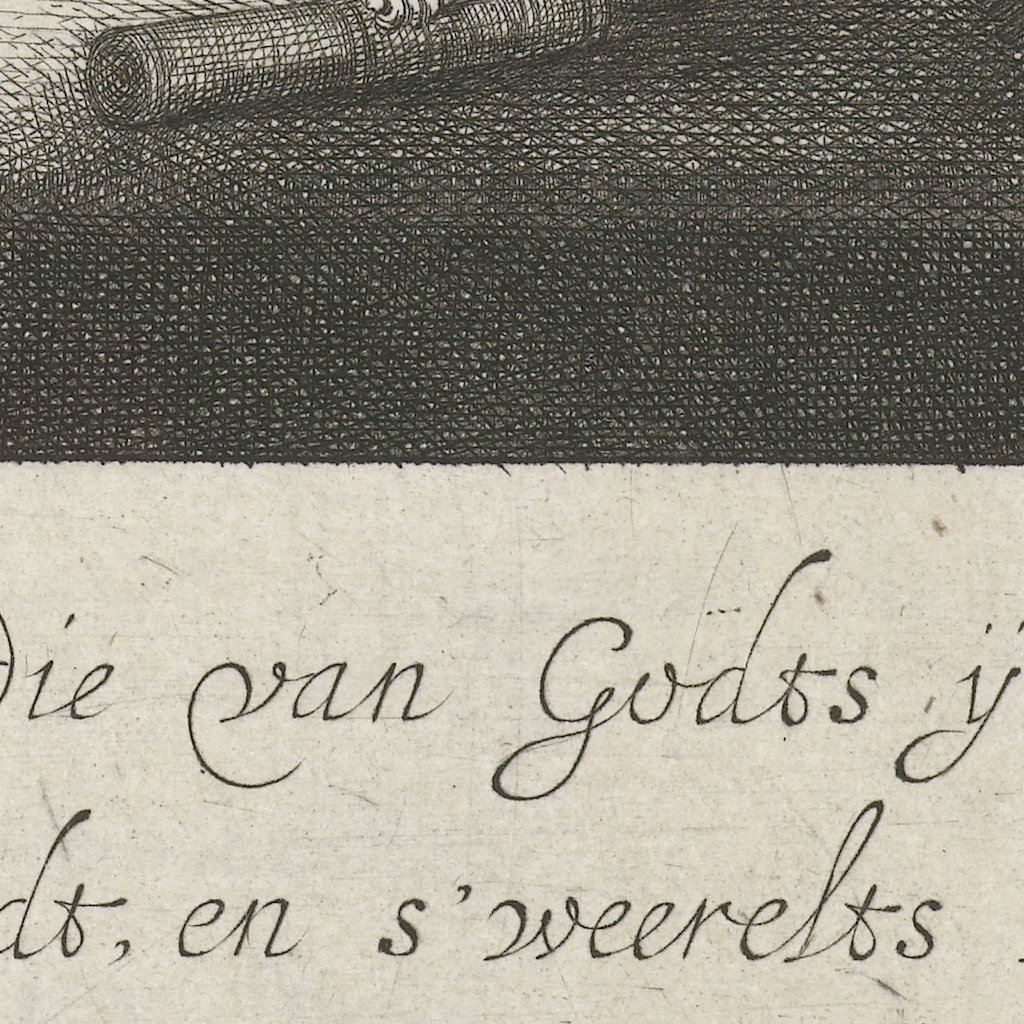 die van Godts
en s'weerelts